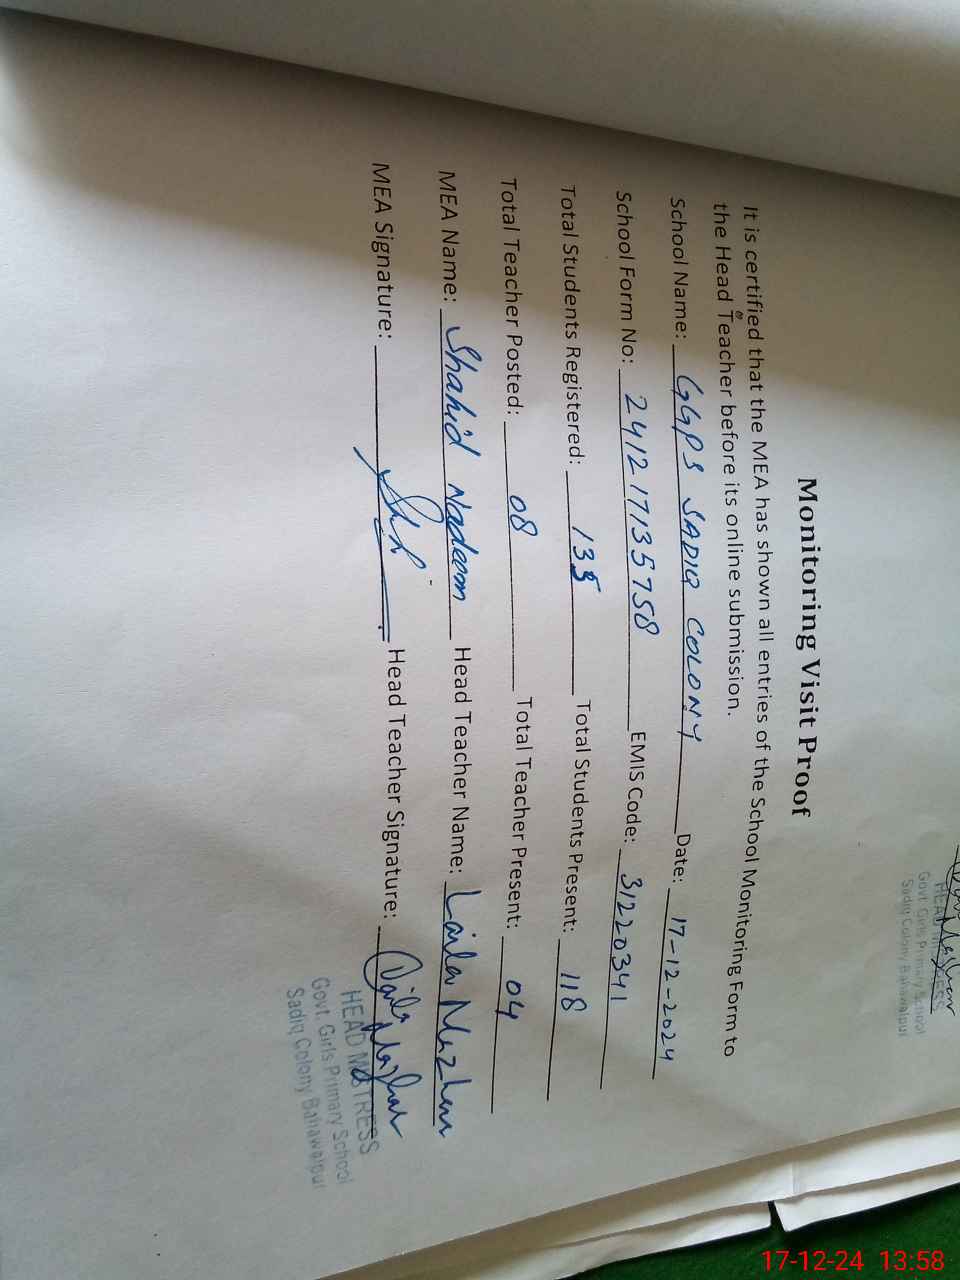 HEAD MISTRESS
Govt. Girls Primary School
Sadiq Colony Bahawalpur
Monitoring Visit Proof
It is certified that the MEA has shown all entries of the School Monitoring Form to
the Head Teacher before its online submission.
School Name: GGPS SADIQ COLONY Date: 17-12-2024
School Form No: 2412 17135758 EMIS Code: 31220341
Total Students Registered: 135 Total Students Present: 118
Total Teacher Posted: 08 Total Teacher Present: 04
MEA Name: Shahid Nadeem Head Teacher Name: Laila Mazhar
MEA Signature: Head Teacher Signature: Laila Mazhar
HEAD MISTRESS
Govt. Girls Primary School
Sadiq Colony Bahawalpur
17-12-24 13:58